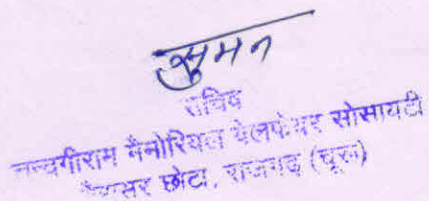 सुमन
सचिव
मैमोरियल वेलफेयर सोसायटी
छोटा, राजगढ़ (चूरू)